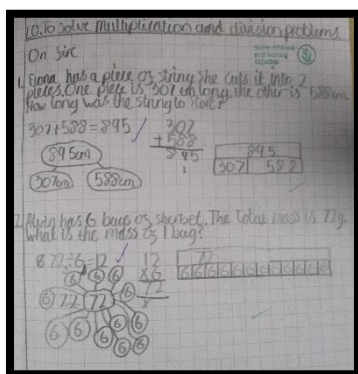 10. To solve multiplication and division problems
On Sirc
1. Fiona has a piece of string she cuts it into 2
pieces. One piece is 307 cm long, the other is 588cm.
How long was the string to start?
307+588=895
307
+588
895
1
895cm
307cm
588cm
895
307 588
2. Alvin has 6 bags of sherbet. The total mass is 72g.
What is the mass of 1 bag?
72÷6=12
12
x6
72
72
6 6 6 6 6 6 6 6 6 6 6 6
72 72
6 6 6 6 6 6 6 6 6 6